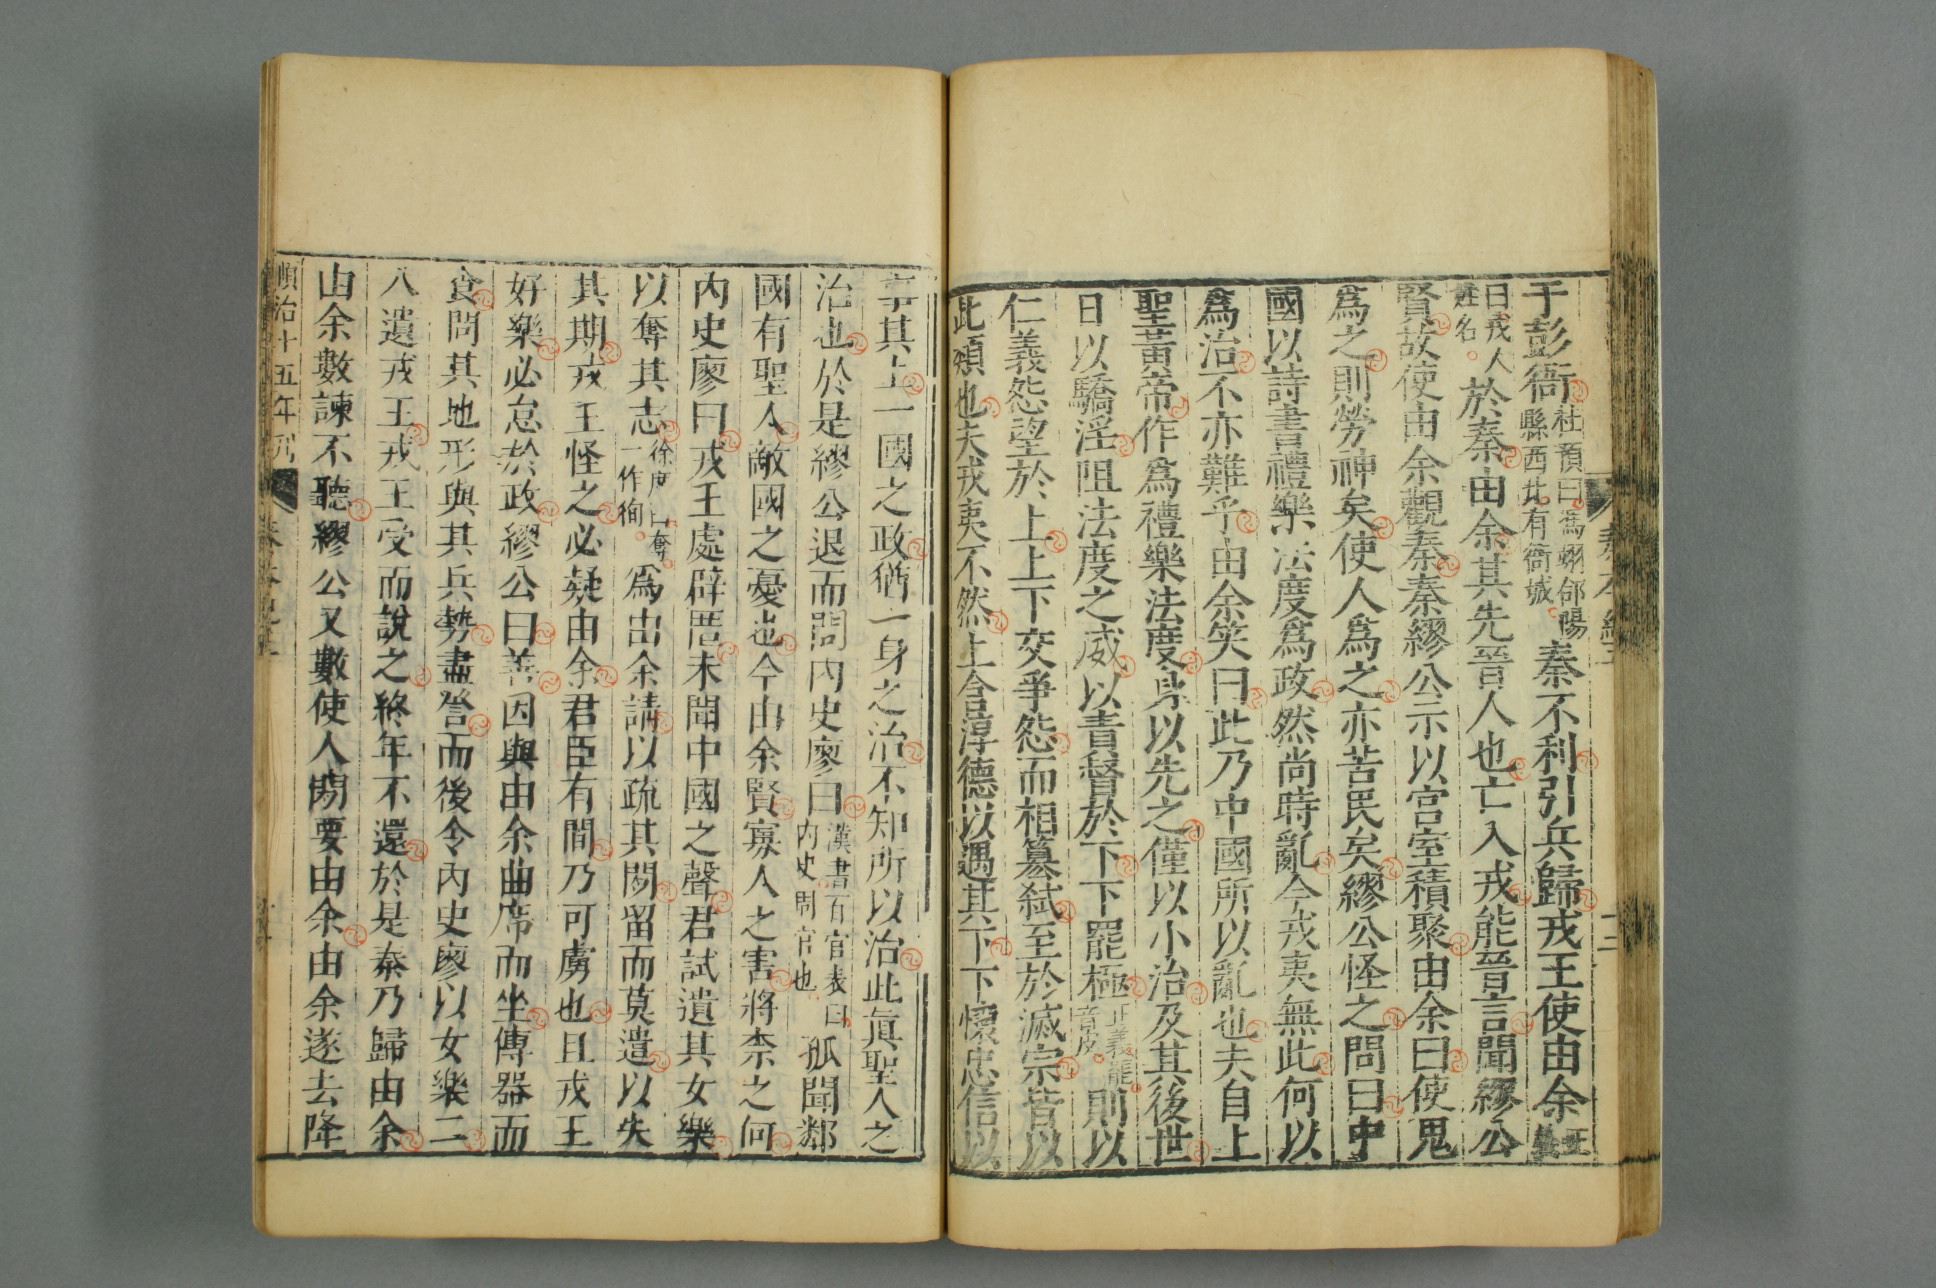 于彭衙杜預曰馮翊郃陽縣西北有衙城秦不利引兵歸戎王使由余
曰戎人姓名於秦由余其先晉人也亡入戎能晉言聞繆公
賢故使由余觀秦秦繆公示以宮室積聚由余曰使鬼
爲之則勞神矣使人爲之亦苦民矣繆公怪之問曰中
國以詩書禮樂法度爲政然尚時亂今戎夷無此何以
爲治不亦難乎由余笑曰此乃中國所以亂也夫自上
聖黃帝作爲禮樂法度身以先之僅以小治及其後世
日以驕淫阻法度之威以責督於下下罷極正義罷音皮則以
仁義怨望於上上下交爭怨而相篡弒至於滅宗皆以
此類也夫戎夷不然上含淳德以遇其下下懷忠信以
事其上一國之政猶一身之治不知所以治此眞聖人之
治也於是繆公退而問內史廖曰漢書百官表曰內史周官也孤聞鄰
國有聖人敵國之憂也今由余賢寡人之害將柰之何
內史廖曰戎王處辟匿未聞中國之聲君試遺其女樂
以奪其志徐廣曰奪一作徇爲由余請以疏其間留而莫遣以失
其期戎王怪之必疑由余君臣有間乃可虜也且戎王
好樂必怠於政繆公曰善因與由余曲席而坐傳器而
食問其地形與其兵勢盡詧而後令內史廖以女樂二
八遺戎王戎王受而說之終年不還於是秦乃歸由余
由余數諫不聽繆公又數使人閒要由余由余遂去降
順治十五年刊